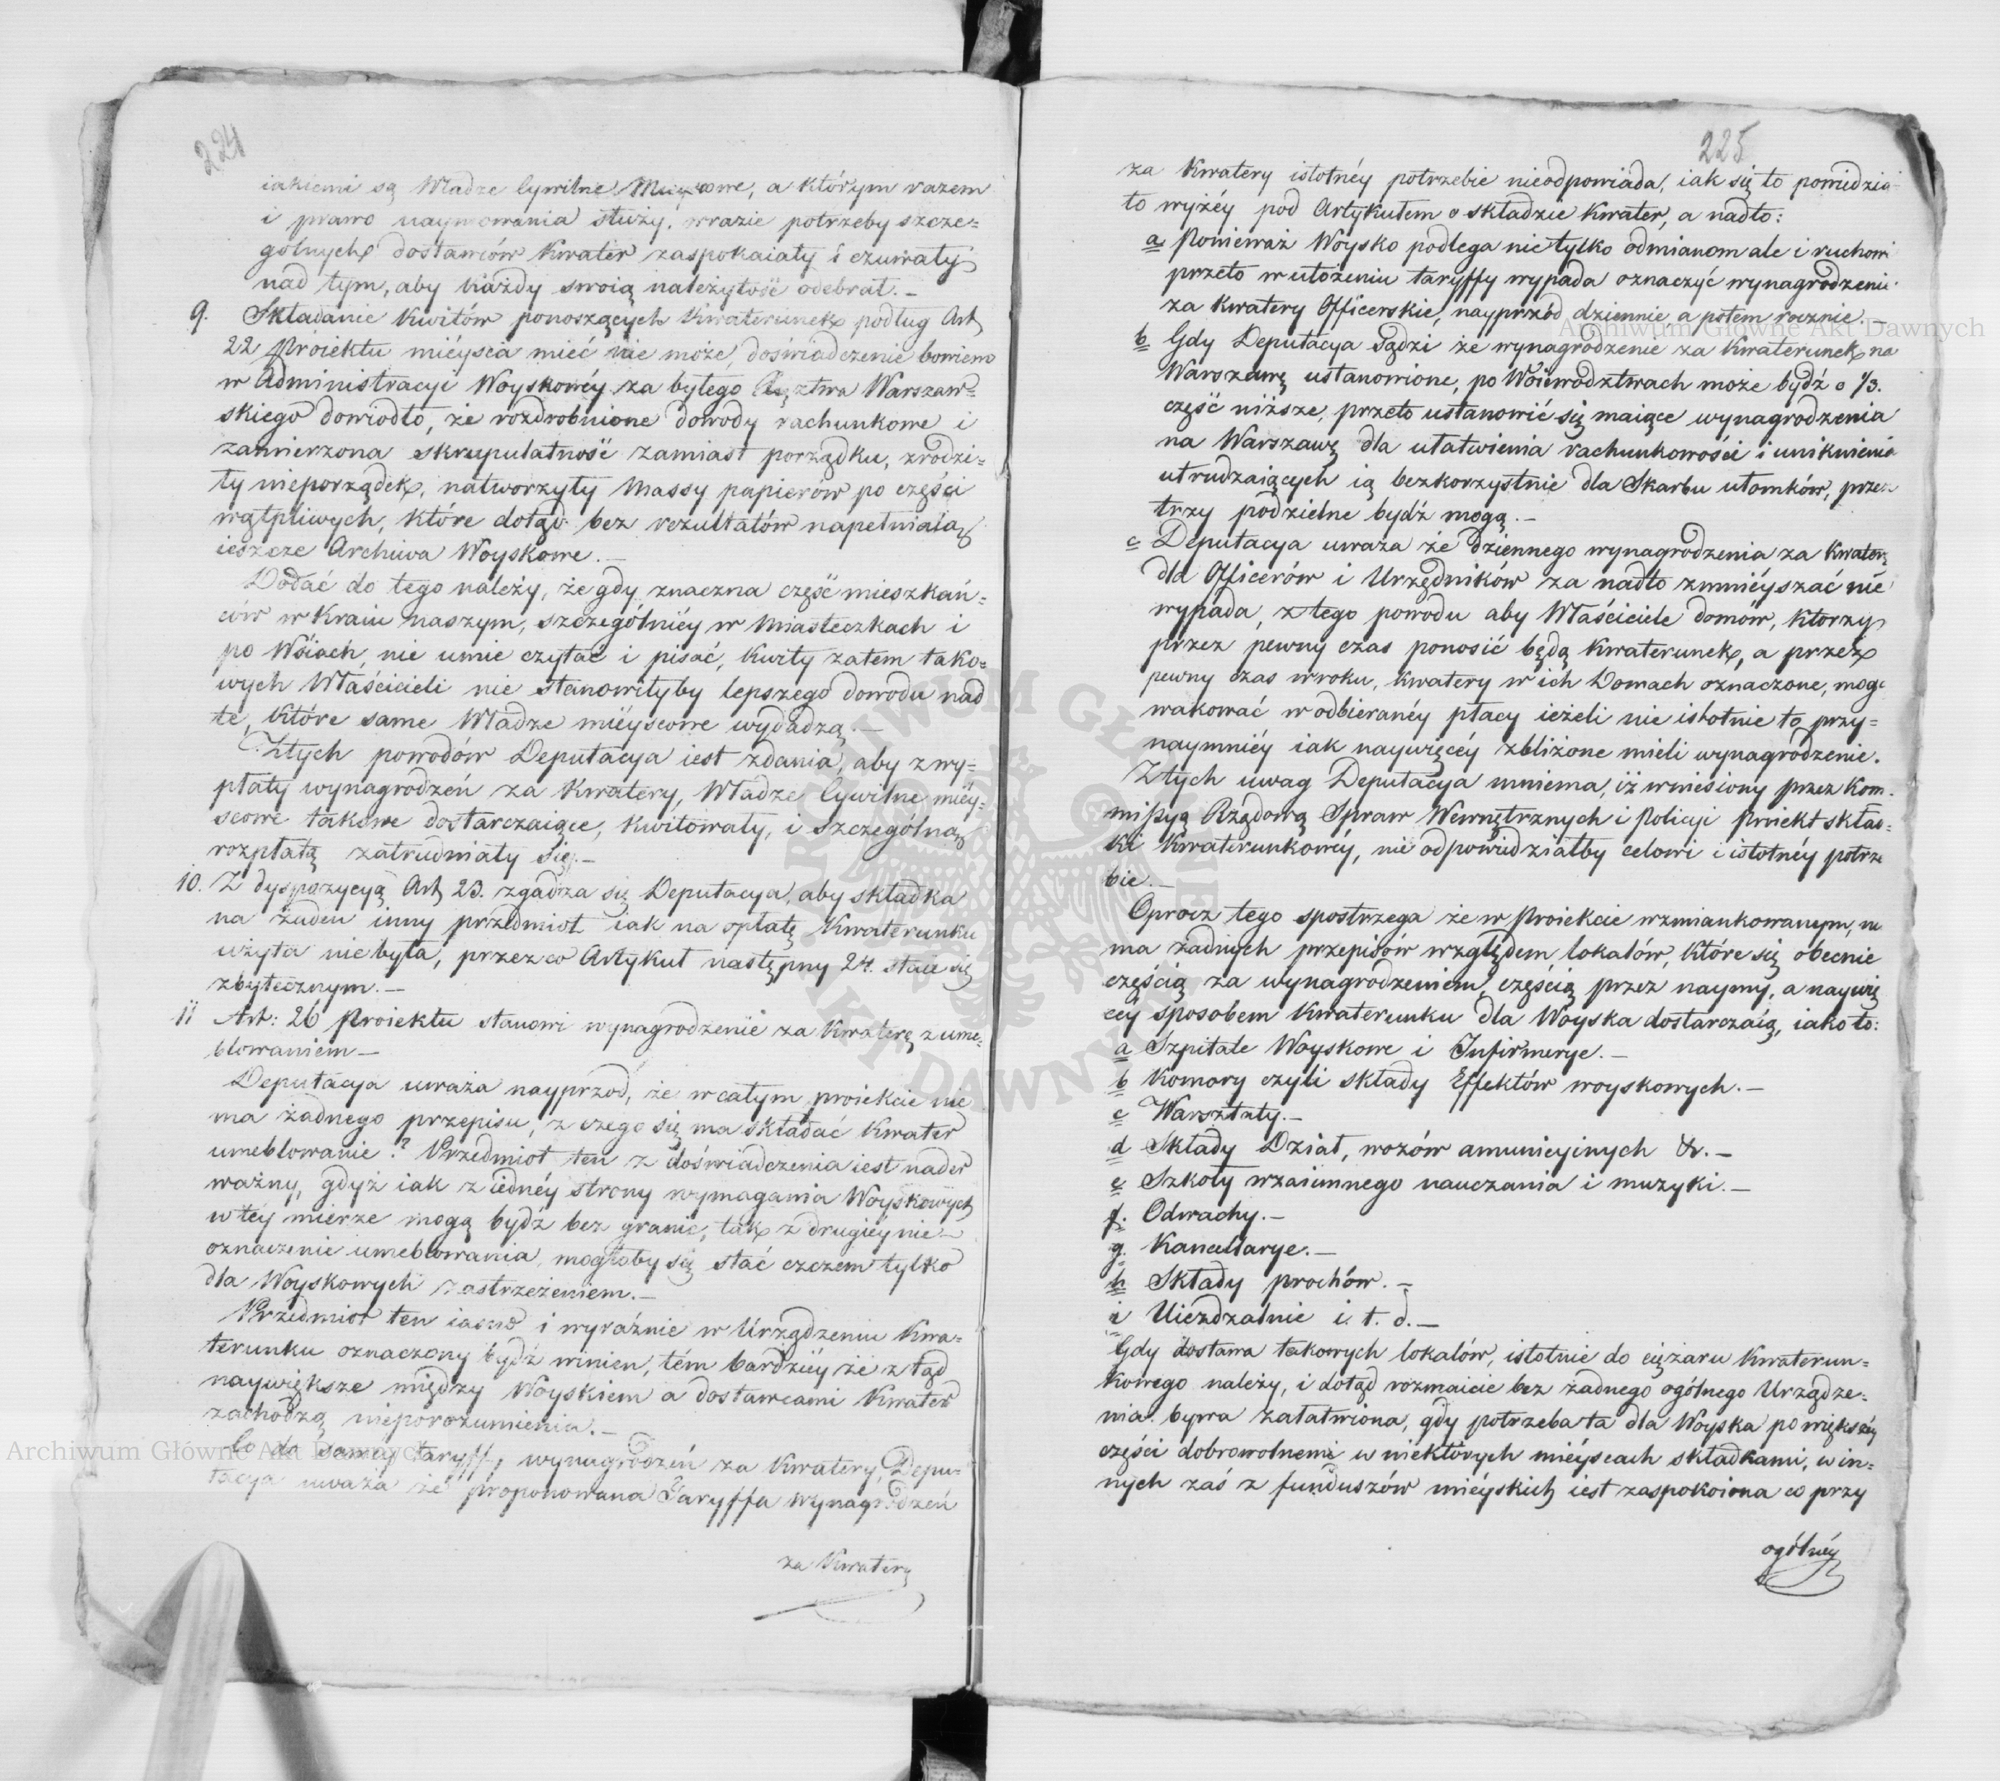 224
iakiemi są Władze Cywilne Mieyscowe, a którym razem
i prawo naymowania służy, w razie potrzeby szcze=
gólnych dostawców Kwater zaspokaiały i czuwały
nad tym, aby każdy swoią należytość odebrał.—
9. Składanie Kwitów ponoszących Kwaterunek podług Art
22 Proiektu mieysca mieć nie może, doświadczenie bowiem
w Administracyi Woyskowéy za byłego Xięztwa Warszaw=
skiego dowiodło, że rozdrobnione dowody rachunkowe i
zamierzona skrupulatność zamiast porządku, zrodzi=
ły nieporządek, natworzyły Massy papierów po części
wątpliwych, które dotąd bez rezultatów napełniaią
ieszcze Archiwa Woyskowe.—
Dodać do tego należy, że gdy znaczna część mieszkań=
ców w Kraiu naszym, szczególniéy w Miasteczkach i
po Wsiach, nie umie czytać i pisać, kwity zatem tako=
wych Właścicieli nie stanowiłyby lepszego dowodu nad
te, które same Władze miéyscowe wydadzą.—
Z tych powodów Deputacya iest zdania, aby z wy=
płaty wynagrodzeń za Kwatery, Władze Cywilne miéy=
scowe takowe dostarczaiące, kwitowały, i szczególną
rozpłatą zatrudniały się.—
10. Z dyspozycyą Art 23. zgadza się Deputacya, aby składka
na żaden inny przedmiot iak na opłatę Kwaterunku
użyta niebyła, przez co Artykuł następny 24. staie się
zbytecznym.—
11 Art: 26 Proiektu stanowi wynagrodzenie za Kwaterę z ume=
blowaniem—
Deputacya uważa nayprzod, że w całym proiekcie nie
ma żadnego przepisu, z czego się ma składać Kwater
umeblowanie? Przedmiot ten z doświadczenia iest nader
ważny, gdyż iak z iednéy strony wymagania Woyskowych
w tey mierze mogą bydź bez granic, tak z drugiéy nie=
oznaczenie umeblowania, mogłoby się stać czczem tylko
dla Woyskowych zastrzeżeniem.—
Przedmiot ten iasno i wyraźnie w Urządzeniu Kwa=
terunku oznaczony bydź winien, tém bardziéy że z tąd
naywiększe między Woyskiem a dostawcami Kwater
zachodzą nieporozumienia.—
Co do saméy taryffy wynagrodzeń za Kwatery, Depu=
tacya uważa że proponowana Taryffa wynagrodzeń
za Kwatery
225
za Kwatery istotnéy potrzebie nieodpowiada, iak się to powiedzia=
ło wyżéy pod Artykułem o składzie Kwater, a nadto:
a Ponieważ Woysko podlega nie tylko odmianom ale i ruchowi
przeto w ułożeniu taryffy wypada oznaczyć wynagrodzenie
za Kwatery Officerskie, nayprzód dziennie a potem rocznie.—
b Gdy Deputacya sądzi że wynagrodzenie za Kwaterunek na
Warszawę ustanowione, po Woiewodztwach może bydź o 1/3.
część niższe, przeto ustanowić się maiące wynagrodzenia
na Warszawę dla ułatwienia rachunkowości i uniknienia
utrudzaiących ią bezkorzystnie dla Skarbu ułomków, przez
trzy podzielne bydź mogą.—
c Deputacya uważa że dziennego wynagrodzenia za Kwatery
dla Officerów i Urzędników za nadto zmniéyszać nie
wypada, z tego powodu aby Właściciele domów, którzy
przez pewny czas ponosić będą Kwaterunek, a przez
pewny czas w roku, Kwatery w ich Domach oznaczone, mogą
wakować w odbieranéy płacy ieżeli nie istotnie to przy=
naymniéy iak naywięcéy zbliżone mieli wynagrodzenie.
Z tych uwag Deputacya mniema, iż wniesiony przez Kom=
missyą Rządową Spraw Wewnętrznych i Policyi Proiekt skład=
ki Kwaterunkowéy, nie odpowiedziałby celowi i istotnéy potrze
bie.—
Oprocz tego spostrzega że w Proiekcie wzmiankowanym, nie
ma żadnych przepisów względem lokalów, które się obecnie
częścią za wynagrodzeniem, częścią przez naymy, a naywię
céy sposobem Kwaterunku dla Woyska dostarczaią, iako to:
a Szpitale Woyskowe i Infirmerye.—
b Komory czyli składy Effektów woyskowych.—
c Warsztaty.—
d Składy Dział, wozów amunicyinych &.—
e Szkoły wzaiemnego nauczania i muzyki.—
f. Odwachy.—
g. Kancellarye.—
h Składy prochów.—
i Uieżdzalnie i t. d.—
Gdy dostawa takowych lokalów, istotnie do ciężaru Kwaterun=
kowego należy, i dotąd rozmaicie bez żadnego ogólnego Urządze=
nia bywa załatwiona, gdy potrzeba ta dla Woyska po większéy
części dobrowolnemi w niektórych miéyscach składkami, w in=
nych zaś z funduszów miéyskich iest zaspokoiona co przy
ogólnéy
Archiwum Główne Akt Dawnych
Archiwum Główne Akt Dawnych
ARCHIWUM GŁÓWNE AKT DAWNYCH